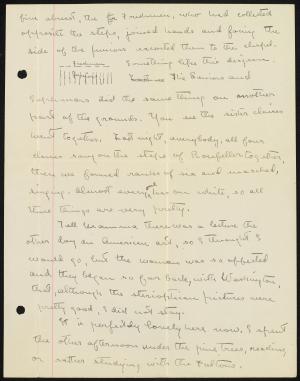 the Freshmen, who had collected
opposite the steps, joined hands and facing the
side of the juniors escorted them to the chapel.
Freshmen Something like this diagram.
The Seniors and
Sophomores did the same thing on another
part of the grounds. You see the sister classes
went together. Last night, everybody, all four
classes sang on the steps of Rockefeller together,
then we formed ranks of six and marched,
singing. Almost everyone has on white, so all
these things are very pretty.
Tell Mamma there was a lecture the
other day on American art, so I thought I
would go, but the woman was so affected
and they began so far back, with Washington,
that, although the stereoptican pictures were
pretty good, I did not stay.
It is perfectly lovely here now. I spent
the other afternoon under the pine trees, reading,
or rather studying with the